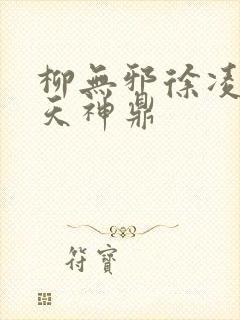 柳無邪徐凌
天神鼎
符寶